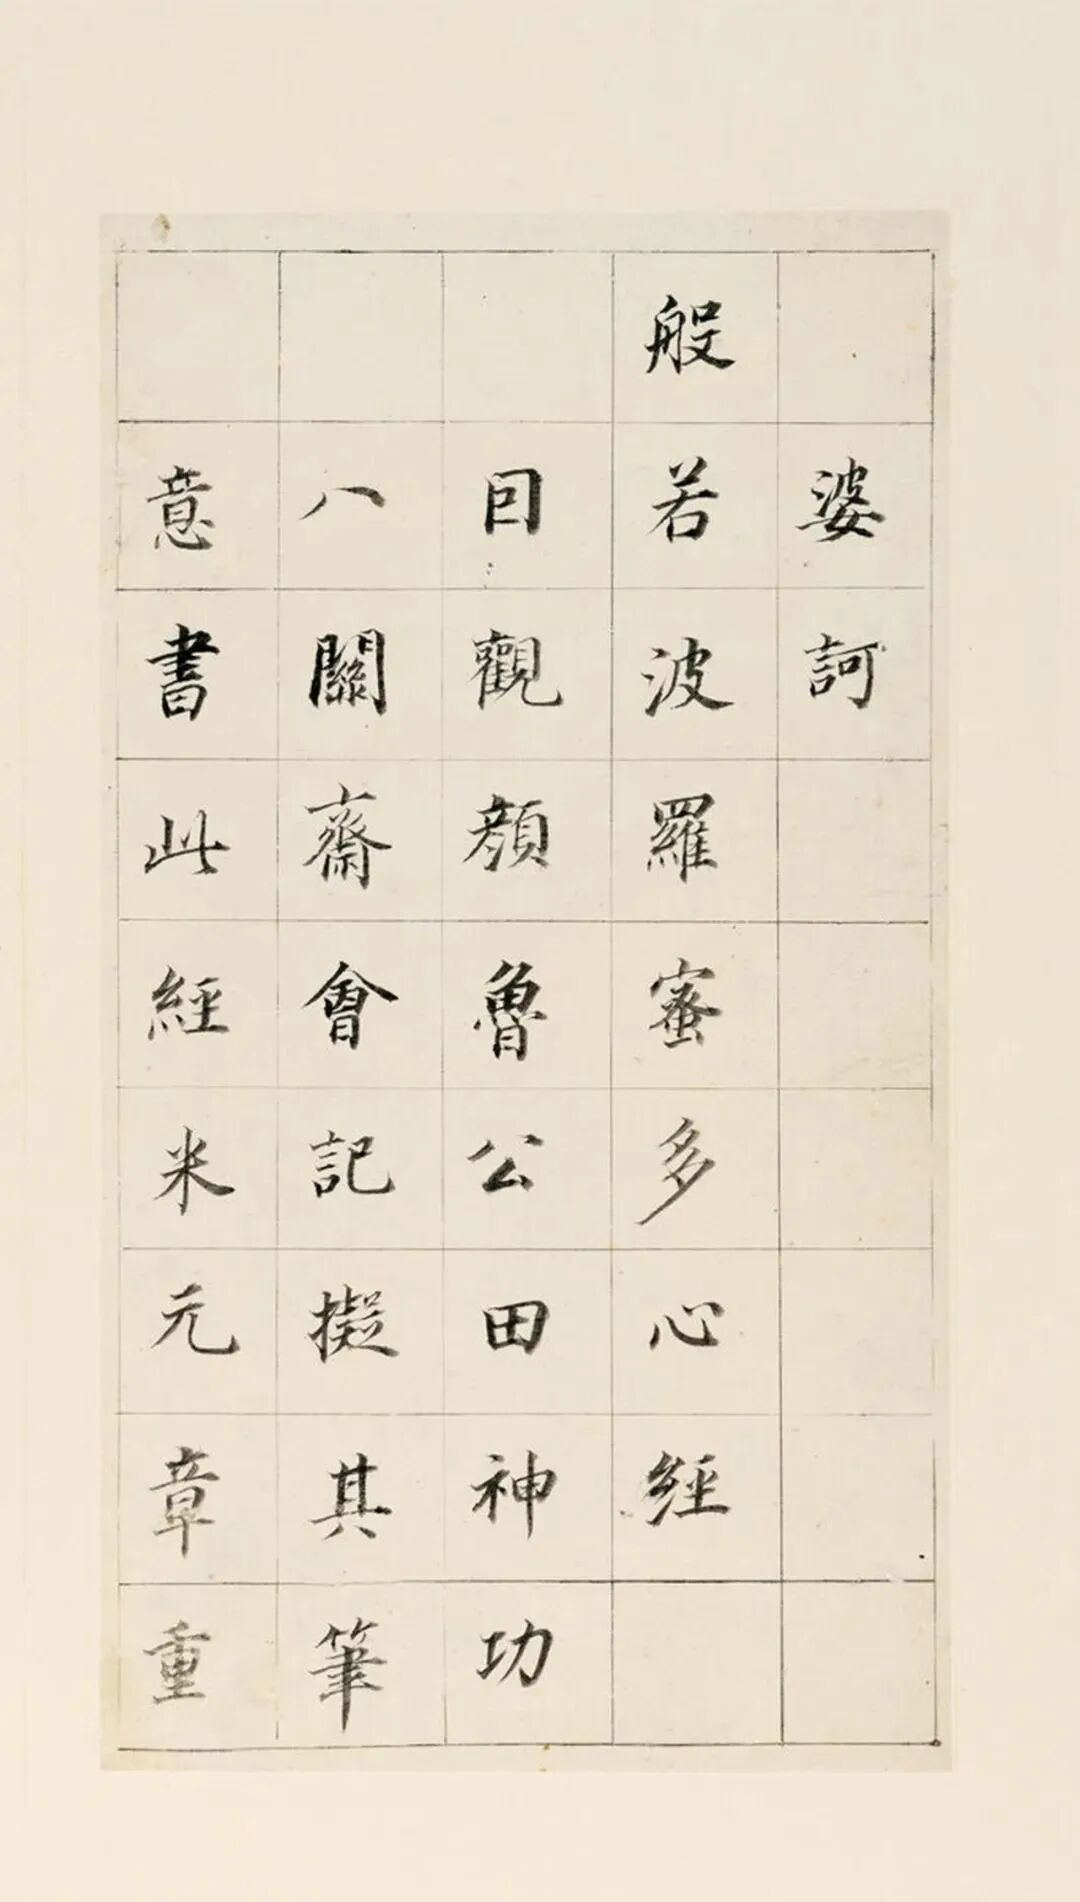 婆訶
般若波羅蜜多心經
囙觀顏魯公田神功
八關齋會記擬其筆
意書此經米元章重